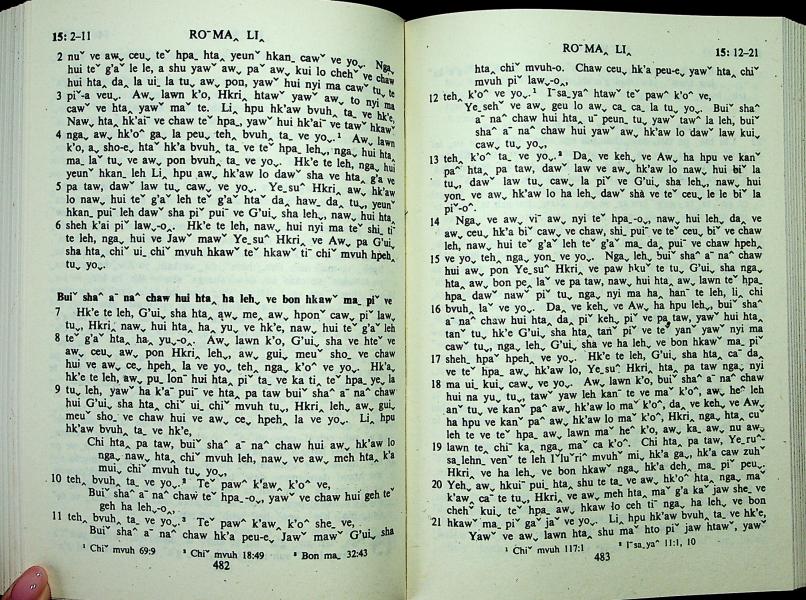 15: 2–11
ROˇ MAˬ LIˬ
2 nuˇ ve awˬ ceuˬ teˇ hpaˬ htaˬ yeunˇ hkanˬ cawˇ ve yoˬ. Ngaˬ
hui teˇ g'aˇ le le, a shu yawˇ awˬ paˇ awˬ kui lo chehˇ ve chaw
hui htaˬ daˬ la uiˬ la tuˬ awˬ pon, yawˇ hui nyi ma cawˇ tuˬ te
3 piˇ-a veuˬ. Awˬ lawn k'o, Hkriˬ htawˇ yawˇ awˬ to nyi ma
cawˇ ve htaˬ yawˇ maˇ te. Liˬ hpu hk'aw bvuhˬ taˬ ve hk'e,
Naw htaˬ hk'aiˇ ve chaw teˇ hpaˬ, yawˇ hui hk'aiˇ ve tawˇ hkawˇ
4 ngaˬ awˬ hk'oˆ gaˬ la peuˬ tehˬ bvuhˬ taˬ ve yoˬ.¹ Awˬ lawn
k'o, aˬ sho-e htaˇ hk'a bvuhˬ taˬ ve teˇ hpaˬ lehˬ, ngaˬ hui htaˬ
maˬ laˇ tuˬ ve awˬ pon bvuhˬ taˬ ve yoˬ. Hk'e te lehˬ, ngaˬ hui
yeunˇ hkanˬ leh Liˬ hpu awˬ hk'aw lo dawˇ sha ve htaˬ g'a ve
5 pa taw, dawˇ law tuˬ cawˬ ve yoˬ. Yeˬ suˇ Hkriˬ awˬ hk'aw
lo nawˬ hui teˇ g'aˇ leh teˇ g'aˇ htaˇ daˬ hawˬ daˬ tuˬ, yeunˇ
hkanˬ puiˇ leh dawˇ sha piˇ puiˇ ve G'uiˬ sha lehˬ, nawˬ hui htaˬ
6 sheh k'ai piˇ lawˬ-oˬ. Hk'e te leh, nawˬ hui nyi ma teˇ shiˬ tiˇ
te leh, ngaˬ hui ve Jawˇ mawˇ Yeˬ suˇ Hkriˬ ve Awˬ pa G'uiˬ
sha htaˬ chiˇ uiˬ chiˇ mvuh hkawˇ teˇ hkawˇ tiˇ chiˇ mvuh hpehˬ
tuˬ yoˬ.
Buiˇ shaˆ aˉ naˆ chaw hui htaˬ ha lehˬ ve bon hkawˇ maˬ piˇ ve
7 Hk'e te leh, G'uiˬ sha htaˬ awˬ meˬ awˬ hponˇ cawˬ piˇ law
tuˬ, Hkriˬ nawˬ hui htaˬ haˬ yuˬ ve hk'e, nawˬ hui teˇ g'aˇ leh
8 teˇ g'aˇ htaˬ haˬ yuˬ-oˬ. Awˬ lawn k'o, G'uiˬ sha ve hteˇ ve
awˬ ceuˬ awˬ pon Hkriˬ lehˬ, awˬ guiˬ meuˇ shoˬ ve chaw
hui ve awˬ ceˬ hpehˬ la ve yoˬ tehˬ ngaˬ k'oˆ ve yoˬ. Hk'aˬ
hk'e te leh, awˬ puˬ lonˇ hui htaˬ piˇ taˬ ve ka tiˬ teˇ hpaˬ yeˬ la
9 tuˬ leh, yawˇ ha k'aˇ puiˇ ve htaˬ pa taw buiˇ shaˆ aˉ naˆ chaw
hui G'uiˬ sha htaˬ chiˇ uiˬ chiˇ mvuh tuˬ, Hkriˬ lehˬ, awˬ guiˬ
meuˇ shoˬ ve chaw hui ve awˬ ceˬ hpehˬ la ve yoˬ. Liˬ hpu
hk'aw bvuhˬ taˬ ve hk'e,
Chi htaˬ pa taw, buiˇ shaˆ aˉ naˆ chaw hui awˬ hk'aw lo
ngaˬ nawˬ htaˬ chiˇ mvuh lehˬ, nawˬ ve awˬ meh htaˬ k'a
muiˬ chiˇ mvuh tuˬ yoˬ,
10 tehˬ bvuhˬ taˬ ve yoˬ.² Teˇ pawˇ k'awˬ k'oˆ ve,
Buiˇ shaˆ aˉ naˆ chaw teˇ hpaˬ-oˬ, yawˇ ve chaw hui geh teˇ
geh ha lehˬ-oˬ,
11 tehˬ bvuhˬ taˬ ve yoˬ.³ Teˇ pawˇ k'awˬ k'oˆ sheˬ ve,
Buiˇ shaˆ aˉ naˆ chaw hk'a peu-e, Jawˇ mawˇ G'uiˬ sha
¹ Chiˇ mvuh 69:9 ² Chiˇ mvuh 18:49 ³ Bon maˬ 32:43
482
ROˇ MAˬ LIˬ
15: 12–21
htaˬ chiˇ mvuh-o. Chaw ceuˬ hk'a peu-e, yawˇ htaˬ chiˇ
mvuh piˇ lawˬ-oˬ,
12 tehˬ k'oˆ ve yoˬ.¹ Iˉ saˬ yaˆ htawˇ teˇ pawˇ k'oˆ ve,
Yeˬ sehˇ ve awˬ geu lo awˬ caˬ caˬ la tuˬ yoˬ. Buiˇ shaˆ
aˉ naˆ chaw hui htaˬ uˉ peunˬ tuˬ yawˇ tawˇ la leh, buiˇ
shaˆ aˉ naˆ chaw hui yawˇ awˬ hk'aw lo dawˇ law kuiˬ
cawˬ tuˬ yoˬ,
13 tehˬ k'oˆ taˬ ve yoˬ.² Daˬ ve kehˬ ve Awˬ ha hpu ve kanˇ
paˆ htaˬ pa taw, dawˇ law ve awˬ hk'aw lo nawˬ hui biˇ la
tuˬ, dawˇ law tuˬ cawˬ la piˇ ve G'uiˬ sha lehˬ, nawˬ hui
yonˬ ve awˬ hk'aw lo ha lehˬ dawˇ shà ve teˇ ceuˬ le le biˇ la
piˇ-oˆ.
14 Ngaˬ ve awˬ viˉ awˬ nyi teˇ hpaˬ-oˬ, nawˬ hui lehˬ daˬ ve
awˬ ceuˬ hk'a biˇ cawˬ ve chaw, shiˬ puiˇ ve teˇ ceuˬ biˇ ve chaw
lehˬ, nawˬ hui teˇ g'aˇ leh teˇ g'aˇ maˬ daˬ puiˇ ve chaw hpehˬ
15 ve yoˬ tehˬ ngaˬ yonˬ ve yoˬ. Ngaˬ lehˬ, buiˇ shaˆ aˉ naˆ chaw
hui awˬ pon Yeˬ suˇ Hkriˬ ve paw hkuˇ te tuˬ G'uiˬ sha ngaˬ
htaˬ awˬ bon peˬ laˇ ve pa taw, nawˬ hui htaˬ awˬ lawn teˇ hpaˬ
hpaˬ dawˇ nawˇ piˇ tuˬ, ngaˬ nyi ma haˬ hanˉ te leh, liˬ chi
16 bvuhˬ laˇ ve yoˬ. Daˬ ve kehˬ ve Awˬ ha hpu lehˬ, buiˇ shaˆ
aˉ naˆ chaw hui htaˬ daˬ piˇ kehˬ piˇ ve pa taw, yawˇ hui htaˬ
tanˇ tuˬ hk'e G'uiˬ sha htaˬ tanˇ piˇ ve teˇ yanˇ yawˇ nyi ma
cawˇ tuˬ, ngaˬ leh, G'uiˬ sha ve ha lehˬ ve bon hkawˇ maˬ piˇ
17 shehˬ hpaˇ hpehˬ ve yoˬ. Hk'e te leh, G'uiˬ sha htaˬ caˉ daˬ
ve teˇ hpaˬ awˬ hk'aw lo, Yeˬ suˇ Hkriˬ htaˬ pa taw ngaˬ nyi
18 ma uiˬ kuiˬ cawˬ ve yoˬ. Awˬ lawn k'o, buiˇ shaˆ aˉ naˆ chaw
hui na yuˬ tuˬ, tawˇ yaw leh kanˉ te ve maˇ k'oˆ, awˬ heˆ leh
anˇ tuˬ ve kanˇ paˆ awˬ hk'aw lo maˇ k'oˆ, daˬ ve kehˬ ve Awˬ
ha hpu ve kanˇ paˆ awˬ hk'aw lo maˇ k'oˆ, Hkriˬ ngaˬ htaˬ cuˇ
leh te ve teˇ hpaˬ awˬ lawn maˇ heˆ k'o, awˬ kaˬ awˬ nu awˬ
19 lawn teˬ chiˇ kaˬ ngaˬ maˇ ca k'oˆ. Chi htaˬ pa taw, Yeˬ ruˆ-
saˬ lehnˬ venˇ te leh Iˉ luˇ riˆ mvuhˇ miˬ hk'a gaˬ, hk'a caw zuhˇ
Hkriˬ ve ha lehˬ ve bon hkawˇ ngaˬ hk'a dehˬ maˬ piˇ peuˬ.
20 Yehˬ awˬ hkuiˇ puiˬ htaˬ shu te taˬ ve awˬ hk'oˆ htaˬ ngaˬ maˇ
k'awˬ caˉ te tuˬ, Hkriˬ ve awˬ meh htaˬ maˇ g'a kaˇ jaw sheˬ ve
chehˇ kuiˬ teˇ hpaˬ awˬ hkaw lo ceh tiˇ ngaˬ ha lehˬ ve bon
21 hkawˇ maˬ piˇ gaˇ jaˇ ve yoˬ. Liˬ hpu hk'aw bvuhˬ taˬ ve hk'e,
Yawˇ ve awˬ lawn htaˬ shu maˇ hto piˇ jaw htawˇ, yawˇ
¹ Chiˇ mvuh 117:1 ² Iˉ saˬ yaˆ 11:1, 10
483